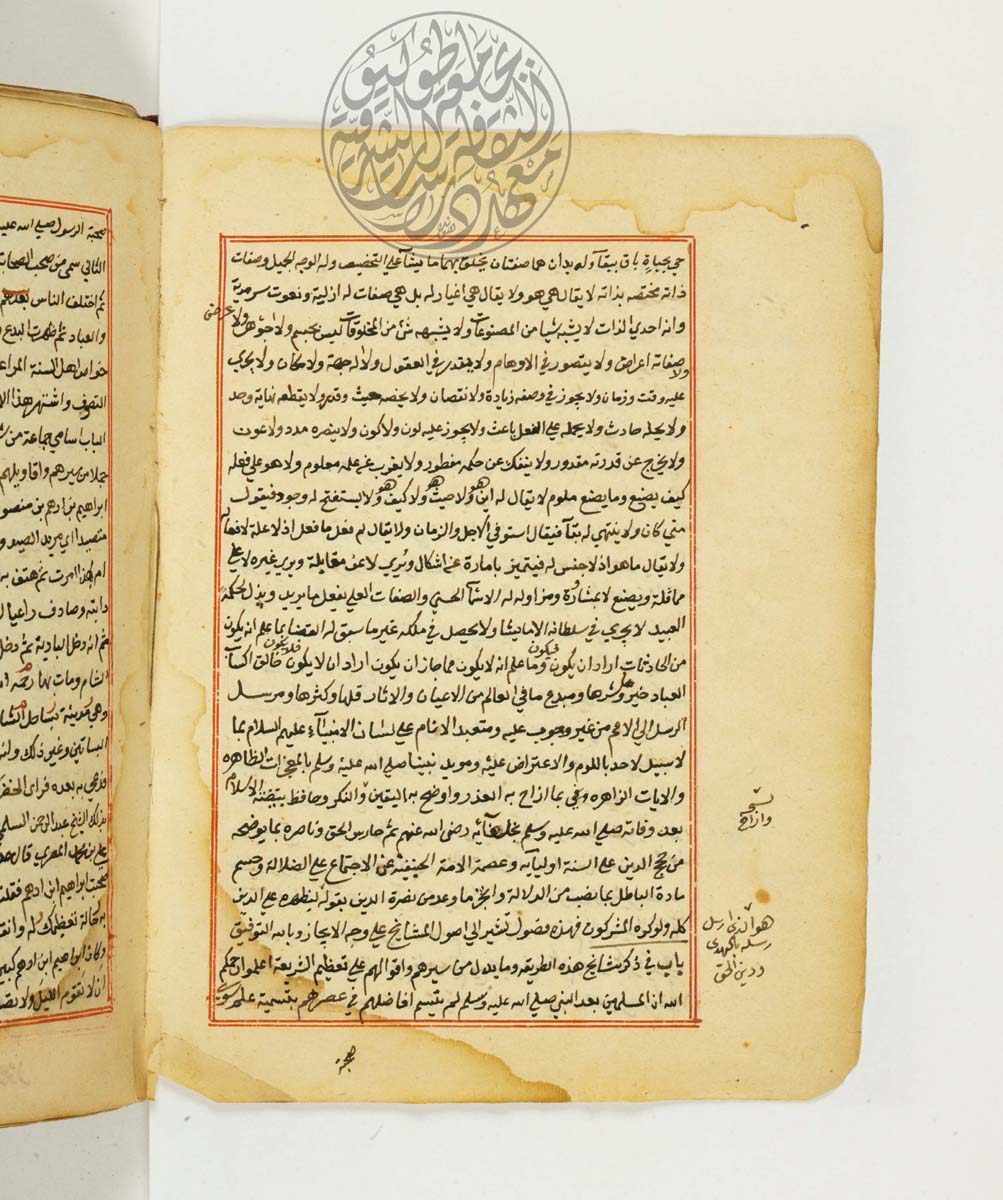 حي بحياة باق ببقآء وله يدان هما صفتان يخلق بهما ما يشآء علي التخصيص وله الوجه الجميل وصفات
ذاته مختصه بذاته لا يقال هي هو ولا يقال هي اغيار له بل هي صفات له ازلية ونعوت سرمدية
وانه احدي الذات لا يشبه شيا من المصنوعات ولا يشبهه شئ من المخلوقات ليس بجسم ولا جوهر ولا عرض
ولا صفاته اعراض ولا يتصور في الاوهام ولا يتقدر في العقول ولا له جهة ولا مكان ولا يجري
عليه وقت وزمان ولا يجوز في وصفه زيادة ولا نقصان ولا يخصه هيئة وقد ولا يقطعه نهاية وحد
ولا يحله حادث ولا يحمله علي الفعل باعث ولا يجوز عليه لون ولا كون ولا ينصره مدد ولا عون
ولا يخرج عن قدرته مقدور ولا ينفك عن حكمه مفطور ولا يعزب عن علمه معلوم ولا هو علي فعله
كيف يصنع وما يصنع ملوم لا يقال له اين هو ولا حيث هو ولا كيف هو ولا يستفتح له وجود فيقول
متي كان ولا ينتهي له بقآء فيقال استوفي الاجل والزمان ولا يقال لم فعل ما فعل اذ لا علة لافعاله
ولا يقال ما هو اذ لا جنس له فيتميز بامارة عن اشكال ويُري لا عن مقابلة ويري غيره لا علي
مماثلة ويصنع لا بمباشرة ومزاوله له الاسمآ الحسني والصفات العلي يفعل ما يريد ويذل لحكمه
العبيد لا يجري في سلطانه الا ما يشا ولا يحصل في ملكه غير ما سبق له القضا ما علم انه يكون
من الحادثات اراد ان يكون فيكون وما علم انه لا يكون مما جاز ان يكون اراد ان لا يكون فلا يكون خالق اكساب
العباد خيرها وشرها ومبدع ما في العالم من الاعيان والاثار قلها وكثرها ومرسل
الرسل الي الامم من غير وجوب عليه ومتعبد الانام علي لسان الانبيآء عليهم السلام بما
لا سبيل لاحد باللوم والاعتراض عليه ومويد نبينا صلي الله عليه وسلم بالمعجزات الظاهره
والايات الزاهره بما ازاح به العذر واوضح به اليقين والنكر وحافظ بيضة الاسلام
بعد وفاته صلي الله عليه وسلم بخلفآئه رضي الله عنهم ثم حارس الحق وناصره بما يوضحه
من حجج الدين علي السنة اوليآيه وعصمة الامة الحنيفية عن الاجتماع علي الضلالة وحسم
مادة الباطل بما نصب من الدلالة وانجز ما وعد من نصرة الدين بقوله ليظهره علي الدين
كله ولو كره المشركون فهذه فصول تشير الي اصول المشايخ علي وجه الايجاز وبالله التوفيق
باب في ذكر مشايخ هذه الطريقه وما يدل من سيرهم واقوالهم علي تعظيم الشريعة اعلموا رحمكم
الله ان المسلمين بعد النبي صلي الله عليه وسلم لم يتسم افاضلهم في عصرهم بتسمية علم سوي
صحبة
وازاح
هو الذي ارسل
رسله بالهدي
ودين الحق
صحبة الرسول صلي الله عليه
الثاني سمي من صحب الصحابة
ثم اختلف الناس بعدهم
والعباد ثم ظهرت البدع
خواص اهل السنة المراعون
التصوف واشتهر هذا الا
الباب اسامي جماعة من
جملا من سيرهم واقاويلهم
ابراهيم بن ادهم بن منصور
ام لهذا امرت ثم هتف به
دابته وصادف راعيا
ثم انه دخل البادية ثم دخل
الشام ومات بها رحمه
البساتين وغير ذلك
بذلك الشيخ عبد الرحمن السلمي
صحبت ابراهيم ابن ادهم فقلت
وكان ابراهيم ابن ادهم كبير
ان لا تقوم الليل ولا تصوم
جامعة طوكيو
معهد دراسات الثقافة الشرقية